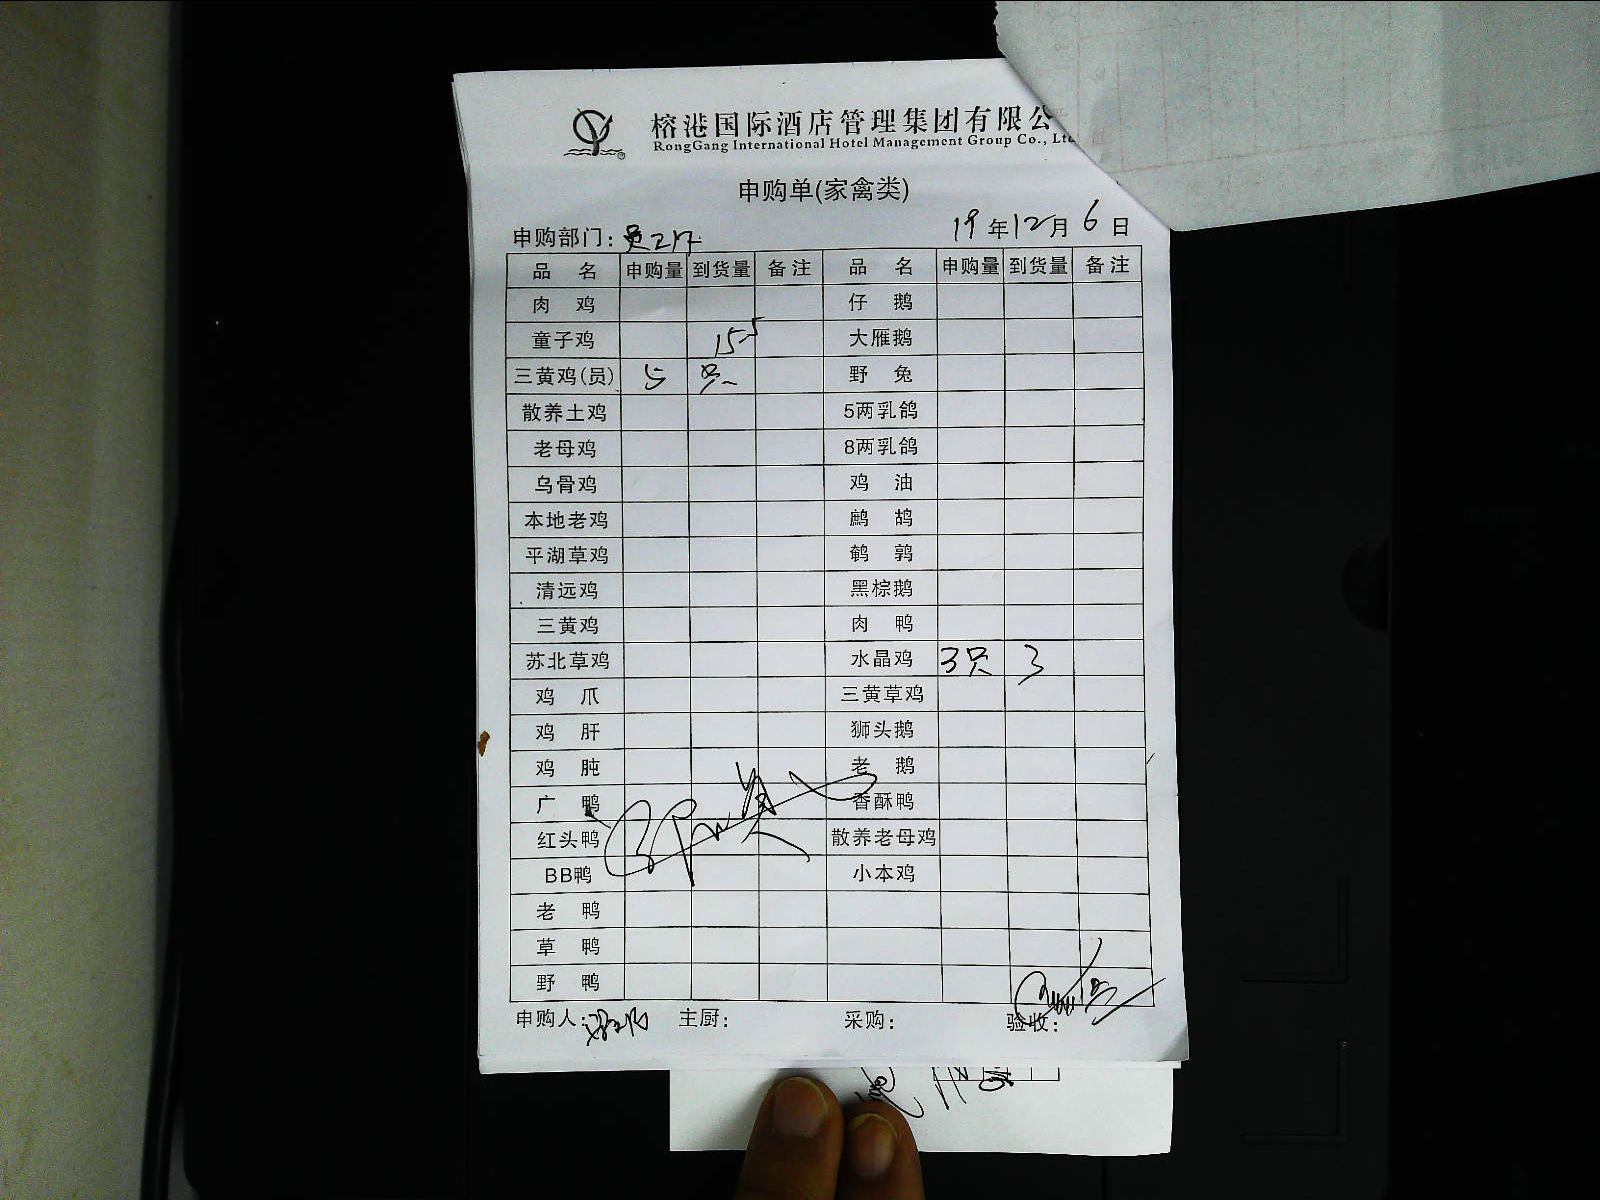 榕港国际酒店管理集团有限公
RongGang International Hotel Management Group Co., Ltd
申购单(家禽类)
申购部门: 19年12月6日
品 名 申购量 到货量 备注 品 名 申购量 到货量 备注
肉 鸡 仔 鹅
童子鸡 大雁鹅
三黄鸡(员) 5 只 野 兔
散养土鸡 5两乳鸽
老母鸡 8两乳鸽
乌骨鸡 鸡 油
本地老鸡 鹧 鸪
平湖草鸡 鹌 鹑
清远鸡 黑棕鹅
三黄鸡 肉 鸭
苏北草鸡 水晶鸡 3只 3
鸡 爪 三黄草鸡
鸡 肝 狮头鹅
鸡 肫 老 鹅
广 鸭 香酥鸭
红头鸭 散养老母鸡
BB鸭 小本鸡
老 鸭
草 鸭
野 鸭
申购人: 主厨: 采购: 验收: